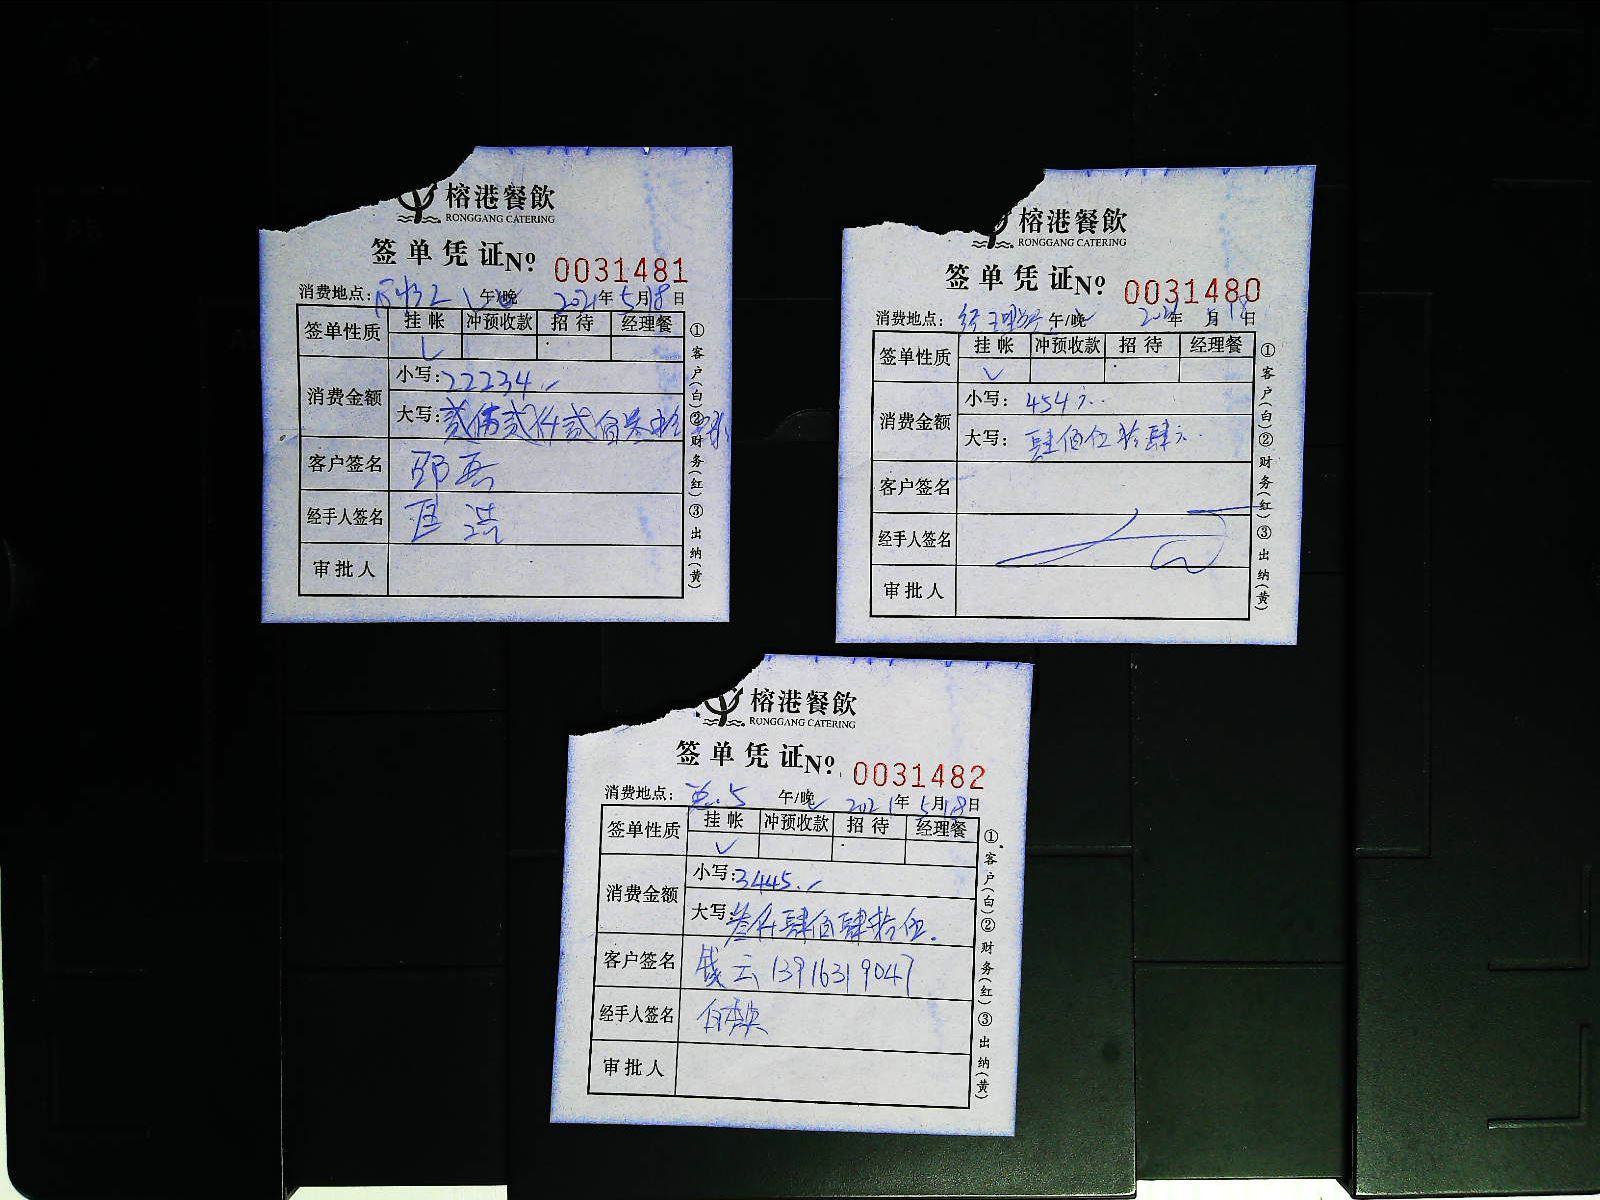 榕港餐飲
RONGGANG CATERING
签单凭证№ 0031481
消费地点: 午/晚 2021年5月18日
签单性质 挂帐 冲预收款 招待 经理餐
消费金额 小写:22234.
大写:贰万贰仟贰佰叁拾
客户签名
经手人签名 匡浩
审批人
①客户(白)②财务(红)③出纳(黄)
榕港餐飲
RONGGANG CATERING
签单凭证№ 0031480
消费地点: 经理餐 午/晚 2021年5月18日
签单性质 挂帐 冲预收款 招待 经理餐
消费金额 小写: 454元.
大写: 肆佰伍拾肆元.
客户签名
经手人签名
审批人
①客户(白)②财务(红)③出纳(黄)
榕港餐飲
RONGGANG CATERING
签单凭证№ 0031482
消费地点: 5 午/晚 2021年5月18日
签单性质 挂帐 冲预收款 招待 经理餐
消费金额 小写:3445.
大写:叁仟肆佰肆拾伍.
客户签名 钱云 13916319047
经手人签名
审批人
①客户(白)②财务(红)③出纳(黄)